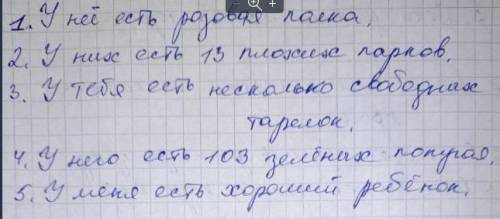 1. У неё есть розовая папка.
2. У них есть 13 плохих парков.
3. У тебя есть несколько свободных
тарелок.
4. У него есть 103 зелёных попугая.
5. У меня есть хороший ребёнок.